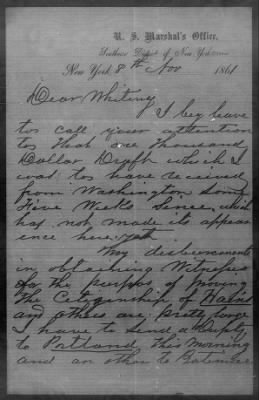 U. S. Marshal's Office,
Southern District of New York
New York 8th Nov 1861
Dear Whiting
I beg leave
to call your attention
to that one thousand
Dollar Draft which I
was to have received
from Washington some
Five Weeks Since, which
has not made its appear
ence here yet.
My disbursements
in obtaining Witnesses
for the purpose of proving
the Citizenship of
and others are pretty large
I have to send a Deputy
to Portland this morning
and an other to Baltimore